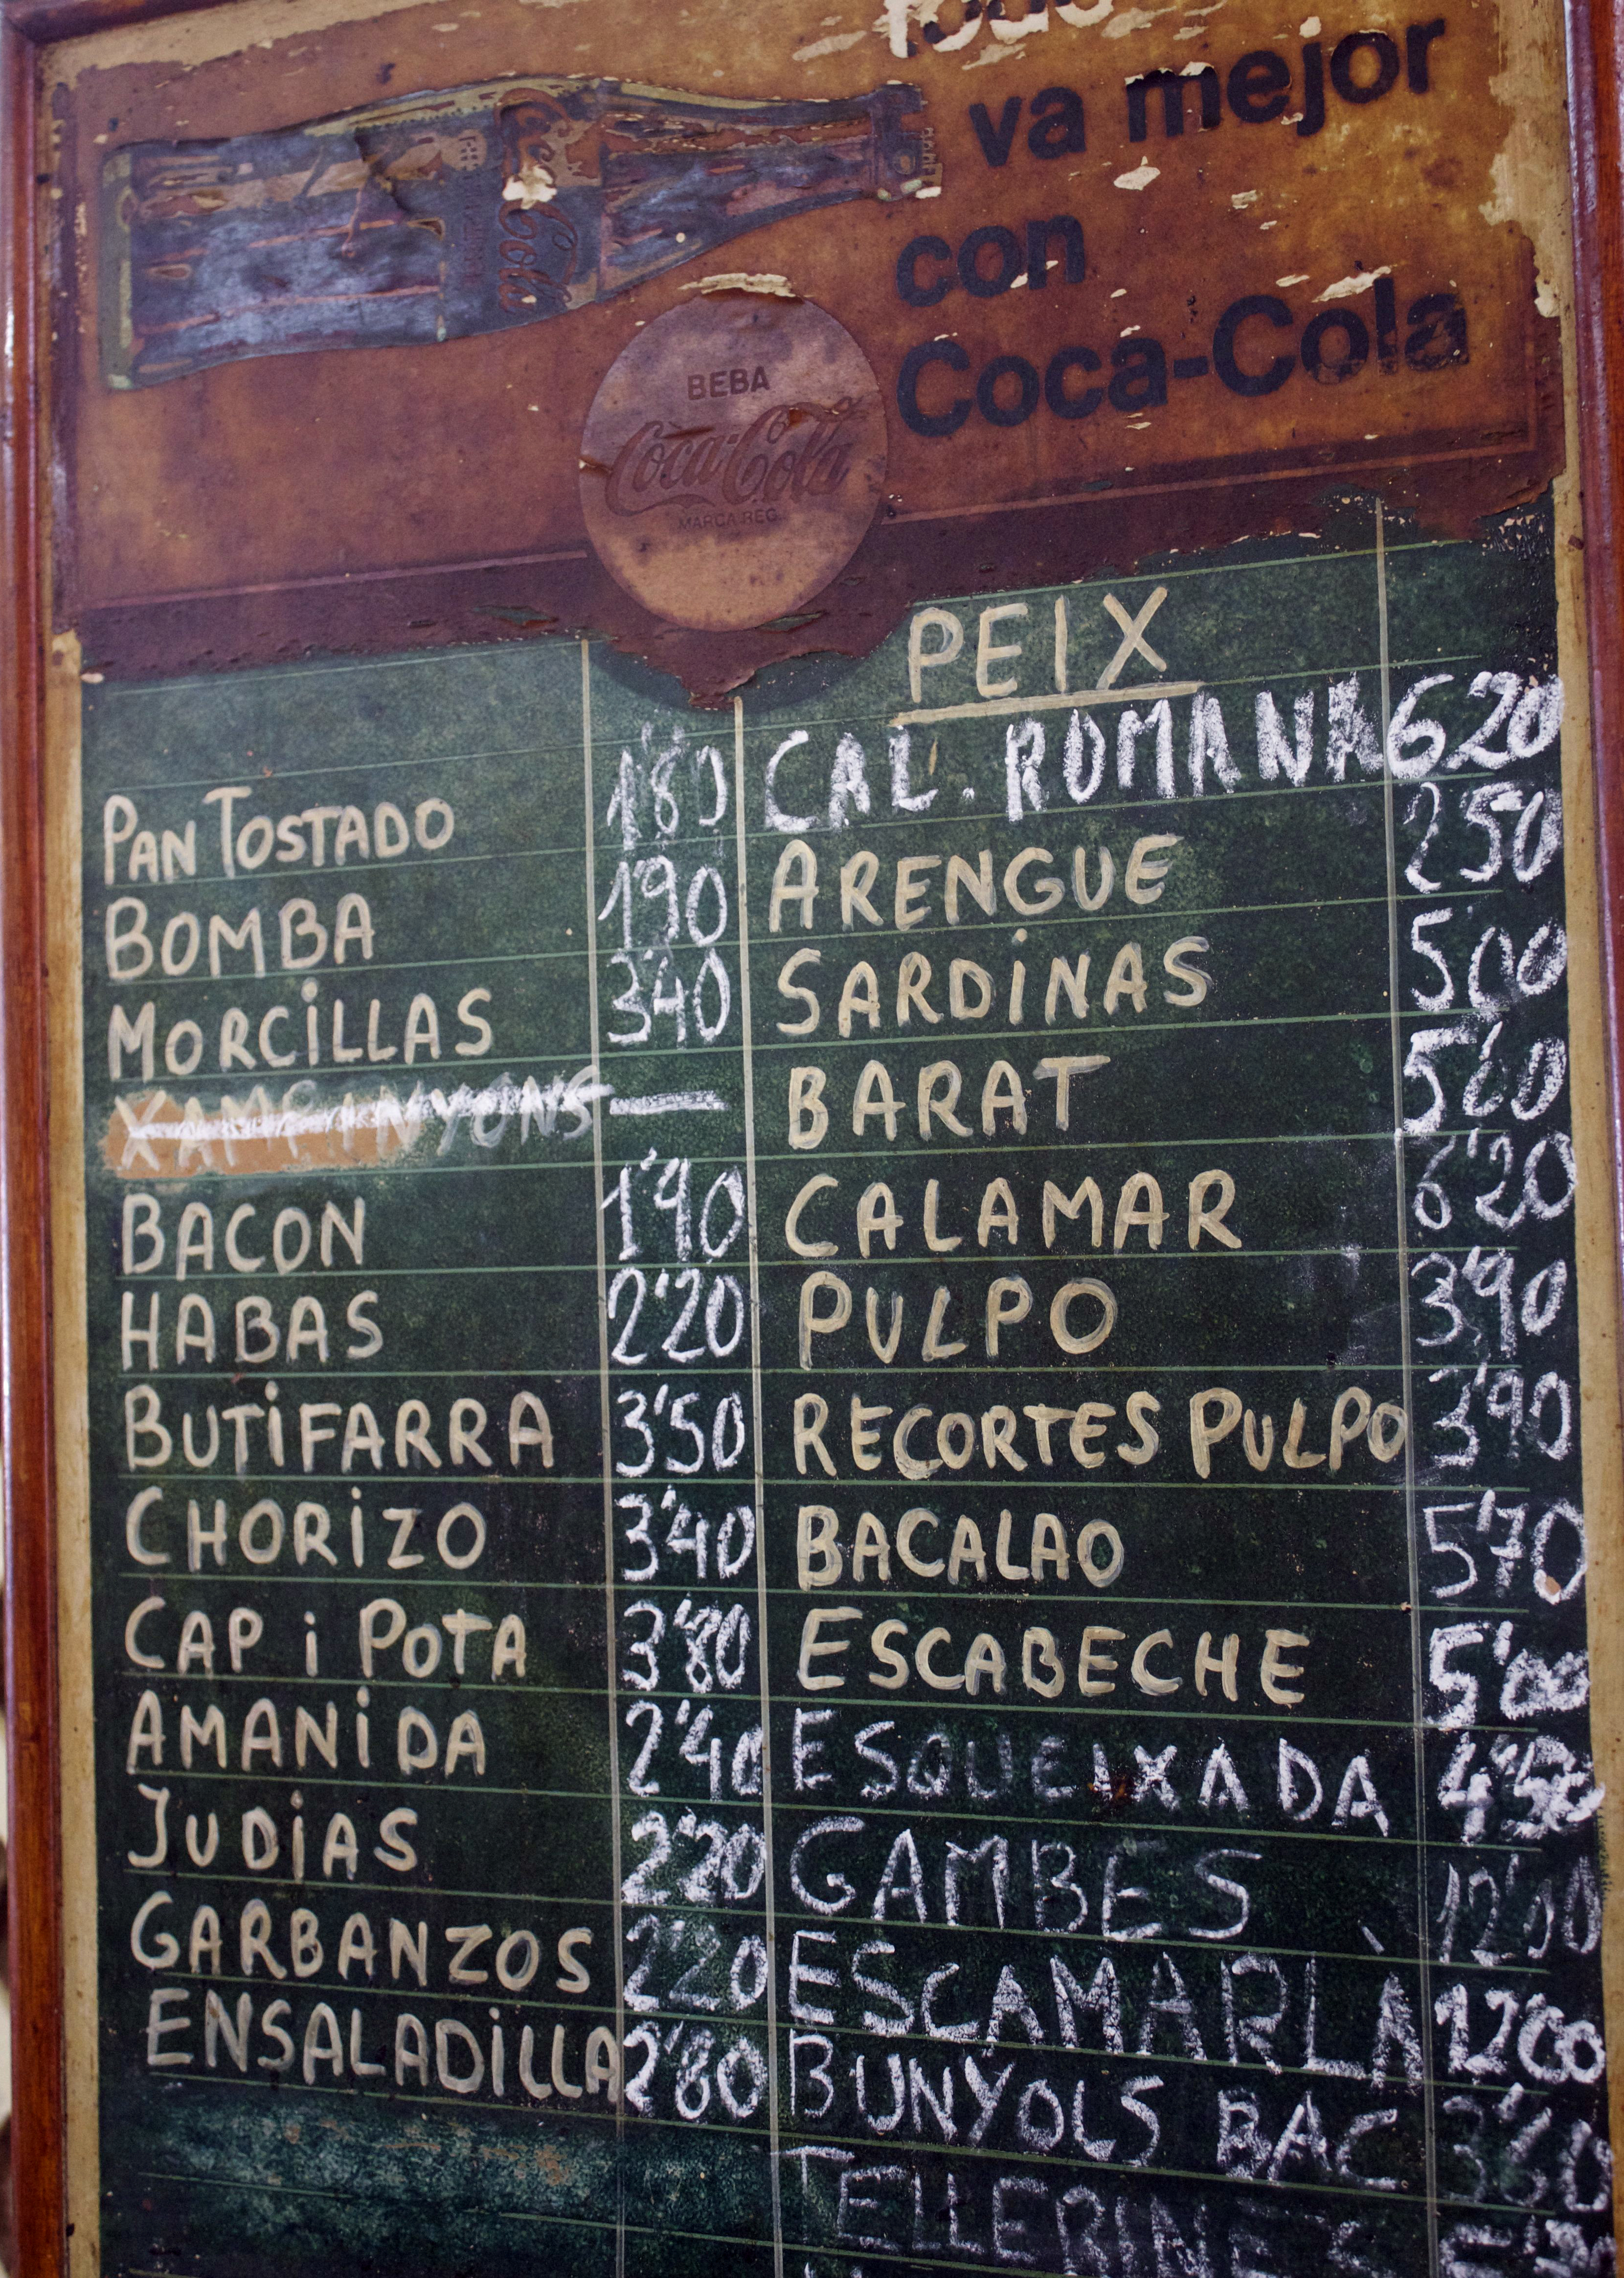 todo
va mejor
con
Coca-Cola
Coca-Cola
BEBA
Coca-Cola
MARCA REG.
PEIX
PAN TOSTADO 1'80
BOMBA 1'90
MORCILLAS 3'40
XAMPINYONS —
BACON 1'90
HABAS 2'20
BUTIFARRA 3'50
CHORIZO 3'40
CAP i POTA 3'80
AMANIDA 2'40
JUDIAS 2'20
GARBANZOS 2'20
ENSALADILLA 2'80
CAL. ROMANA 6'20
ARENGUE 2'50
SARDINAS 5'00
BARAT 5'60
CALAMAR 6'20
PULPO 3'90
RECORTES PULPO 3'90
BACALAO 5'70
ESCABECHE 5'00
ESQUEIXADA 4'50
GAMBES
ESCAMARLÀ 12'00
BUNYOLS BAC
TELLERINES